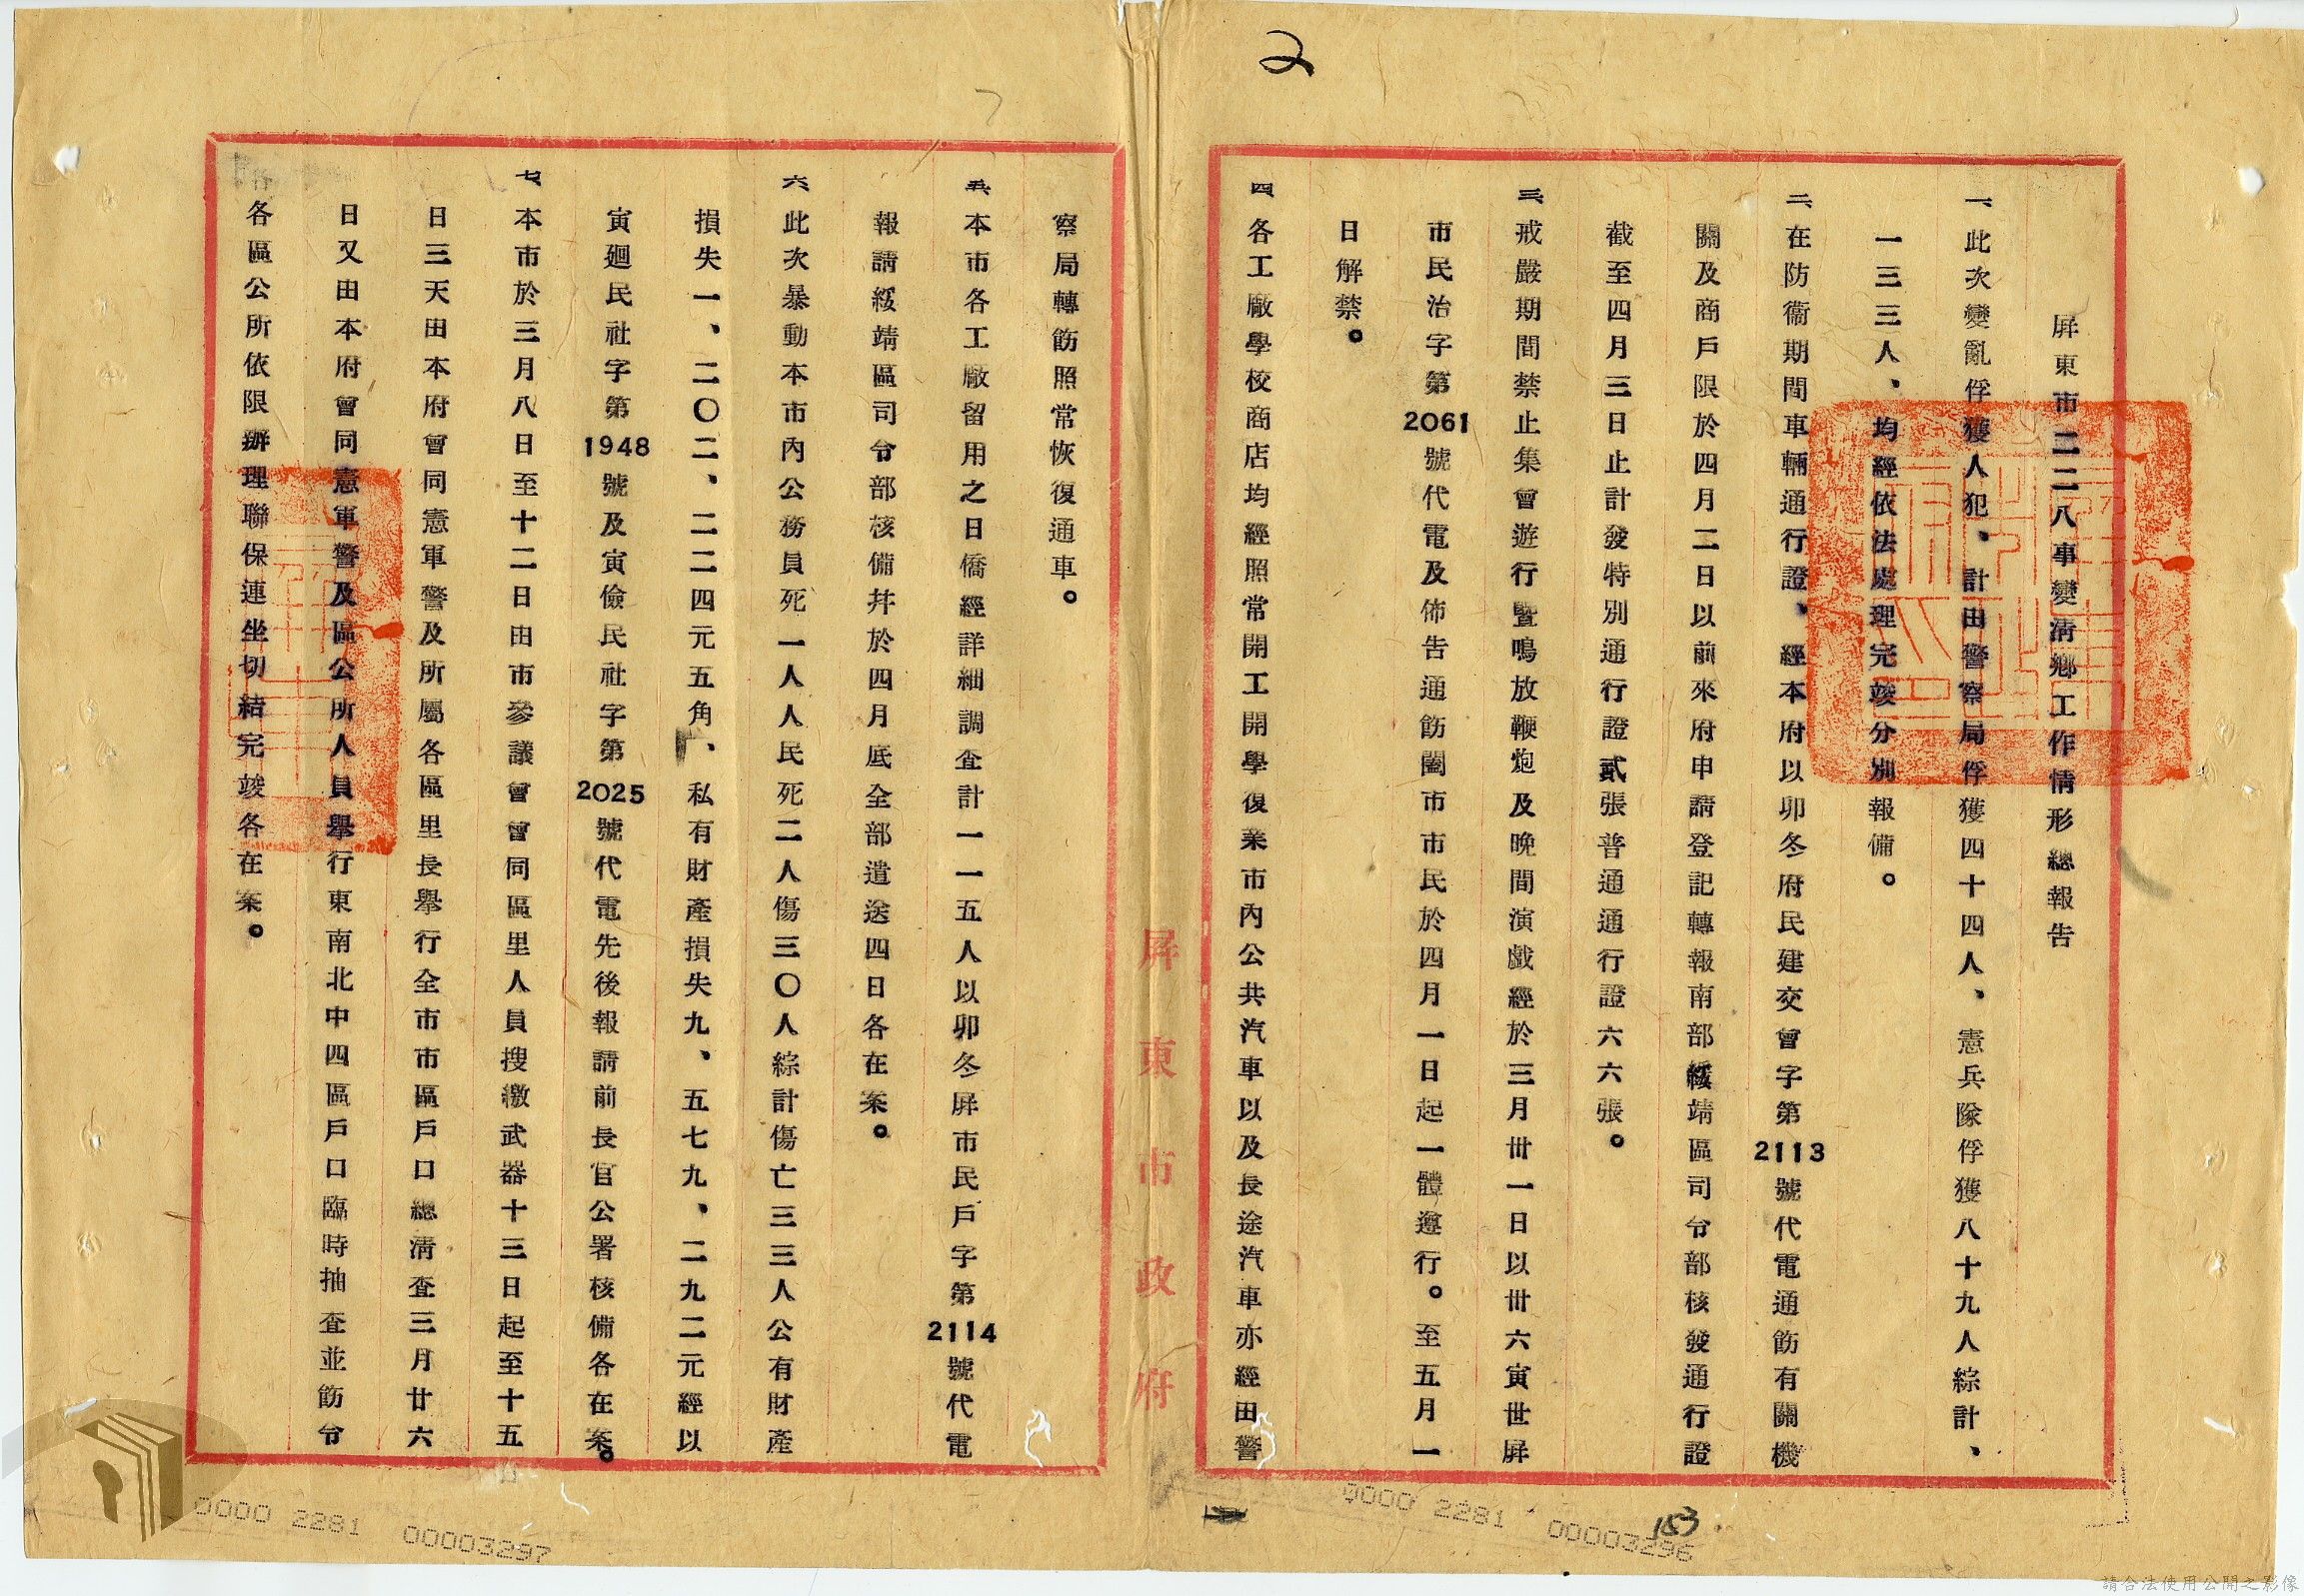 2
屏東市二二八事變淸鄉工作情形總報告
一、此次變亂俘獲人犯、計由警察局俘獲四十四人、憲兵隊俘獲八十九人綜計、
一三三人、均經依法處理完竣分別報備。
二、在防衞期間車輛通行證、經本府以卯冬府民建交會字第2113號代電通飭有關機
關及商戶限於四月二日以前來府申請登記轉報南部綏靖區司令部核發通行證
截至四月三日止計發特別通行證貳張普通通行證六六張。
三、戒嚴期間禁止集會遊行暨鳴放鞭炮及晚間演戲經於三月卅一日以卅六寅世屏
市民治字第2061號代電及佈告通飭闔市市民於四月一日起一體遵行。至五月一
日解禁。
四、各工廠學校商店均經照常開工開學復業市內公共汽車以及長途汽車亦經由警
屏東市政府
察局轉飭照常恢復通車。
五、本市各工廠留用之日僑經詳細調查計一一五人以卯冬屏市民戶字第2114號代電
報請綏靖區司令部核備幷於四月底全部遣送四日各在案。
六、此次暴動本市內公務員死一人人民死二人傷三〇人綜計傷亡三三人公有財產
損失一、二〇二、二二四元五角、私有財產損失九、五七九、二九二元經以
寅廻民社字第1948號及寅儉民社字第2025號代電先後報請前長官公署核備各在案。
七、本市於三月八日至十二日由市參議會會同區里人員搜繳武器十三日起至十五
日三天由本府會同憲軍警及所屬各區里長舉行全市市區戶口總淸查三月廿六
日又由本府會同憲軍警及區公所人員舉行東南北中四區戶口臨時抽查並飭令
各區公所依限辦理聯保連坐切結完竣各在案。
153
0000 2281 00003296
0000 2281 00003297
請合法使用公開之影像